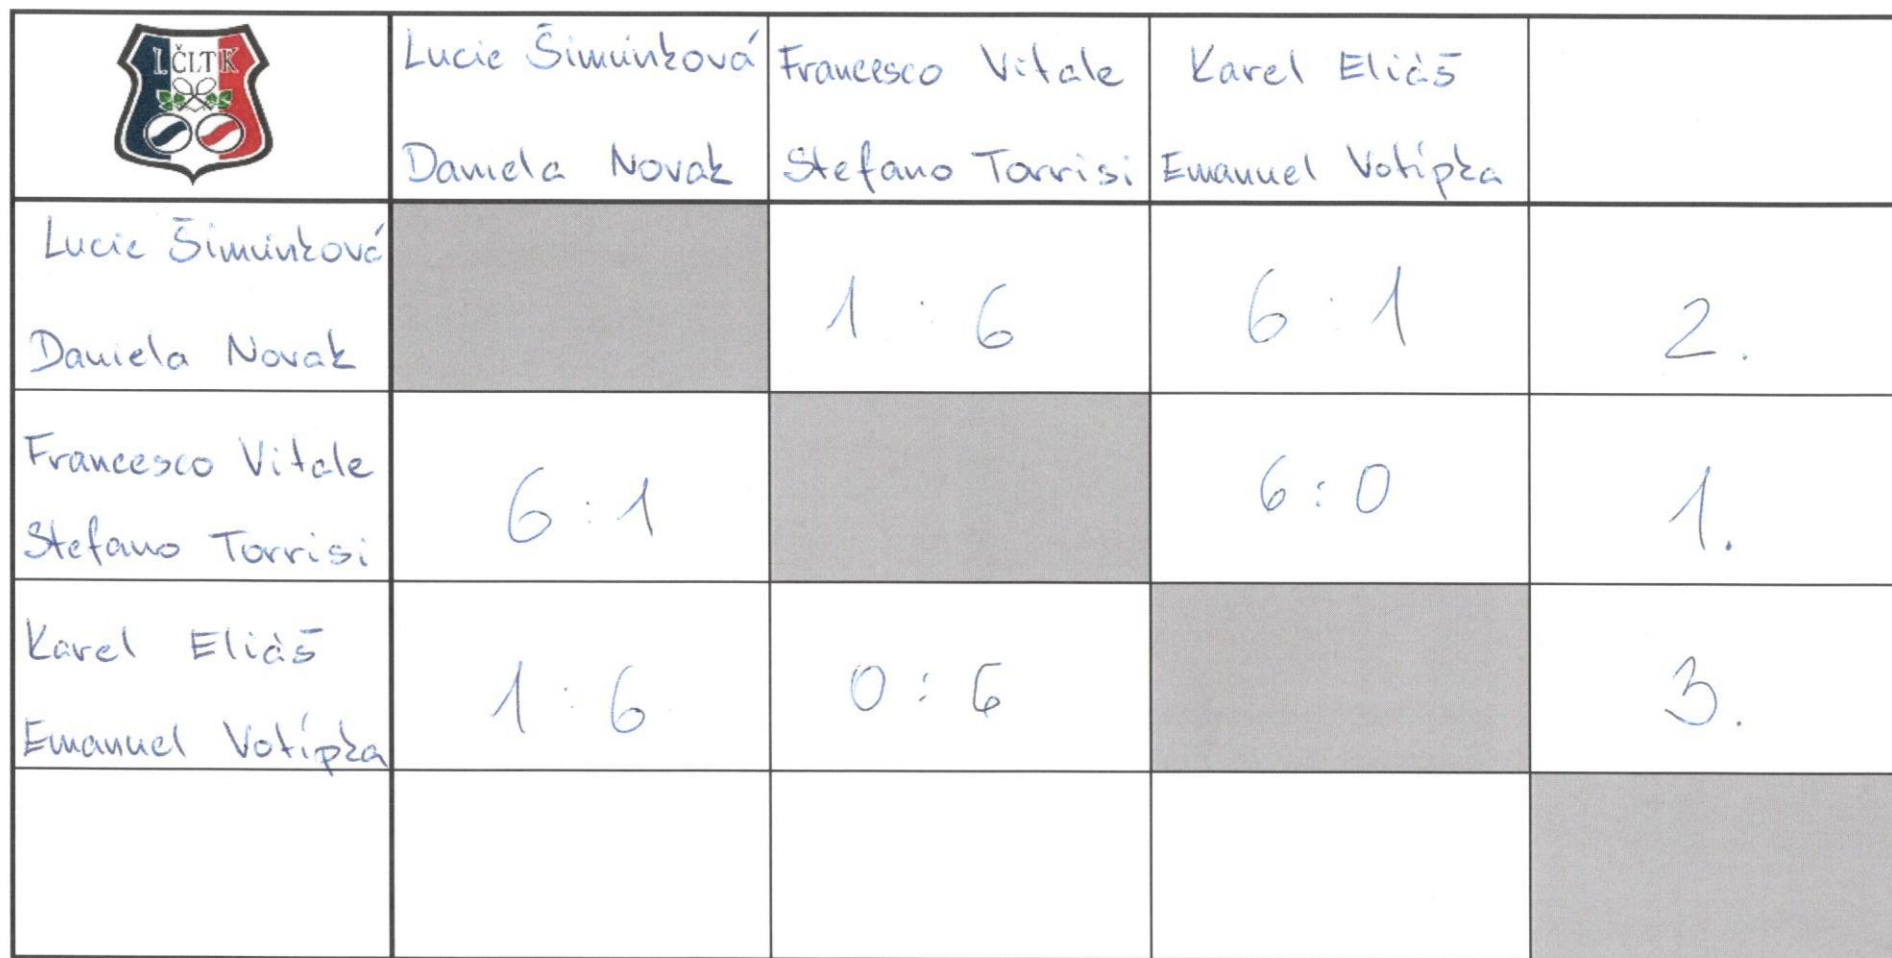 I. ČLTK
Lucie Šimůnková
Daniela Novak
Francesco Vitale
Stefano Torrisi
Karel Eliáš
Emanuel Votípka
Lucie Šimůnková
Daniela Novak
1 : 6
6 : 1
2.
Francesco Vitale
Stefano Torrisi
6 : 1
6 : 0
1.
Karel Eliáš
Emanuel Votípka
1 : 6
0 : 6
3.